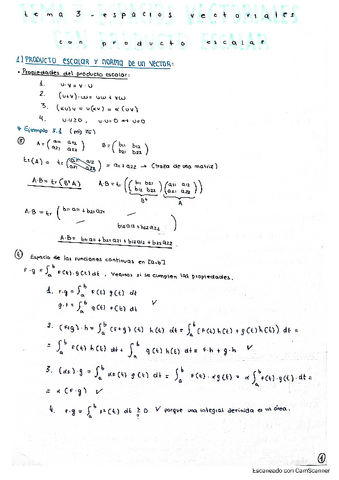 tema 3 - espacios vectoriales
con producto escalar
1) PRODUCTO ESCALAR Y NORMA DE UN VECTOR:
· Propiedades del producto escalar:
1. u·v = v·u
2. (u+v)·w = uw + vw
3. (αu)v = u(αv) = α(uv)
4. u·u ≥ 0, u·u = 0 ↔ u = 0
* Ejemplo 3.1 (pág 75)
A = (a11 a12 a21 a22) B = (b11 b12 b21 b22)
tr(A) = tr(a11 a12 a21 a22) = a11 + a22 → (traza de una matriz)
A·B = tr(BᵗA) A·B = tr((b11 b21 b12 b22)(a11 a12 a21 a22))
Bᵗ A
A·B = tr(b11 a11 + b21 a21
b12 a12 + b22 a22)
A·B = b11 a11 + b21 a21 + b12 a12 + b22 a22
Espacio de las funciones continuas en [a-b]
f·g = ∫ₐᵇ f(t) g(t) dt. Veamos si se cumplen las propiedades.
1. f·g = ∫ₐᵇ f(t) g(t) dt
g·f = ∫ₐᵇ g(t) f(t) dt ✓
2. (f+g)·h = ∫ₐᵇ (f+g)(t) h(t) dt = ∫ₐᵇ (f(t) h(t) + g(t) h(t)) dt =
= ∫ₐᵇ f(t) h(t) dt + ∫ₐᵇ g(t) h(t) dt = f·h + g·h ✓
3. (αf)·g = ∫ₐᵇ αf(t) g(t) dt = ∫ₐᵇ f(t)·αg(t) dt = α ∫ₐᵇ f(t)·g(t) dt =
= α(f·g) ✓
4. f·f = ∫ₐᵇ f²(t) dt ≥ 0 ✓ porque una integral definida es un área.
1
Escaneado con CamScanner